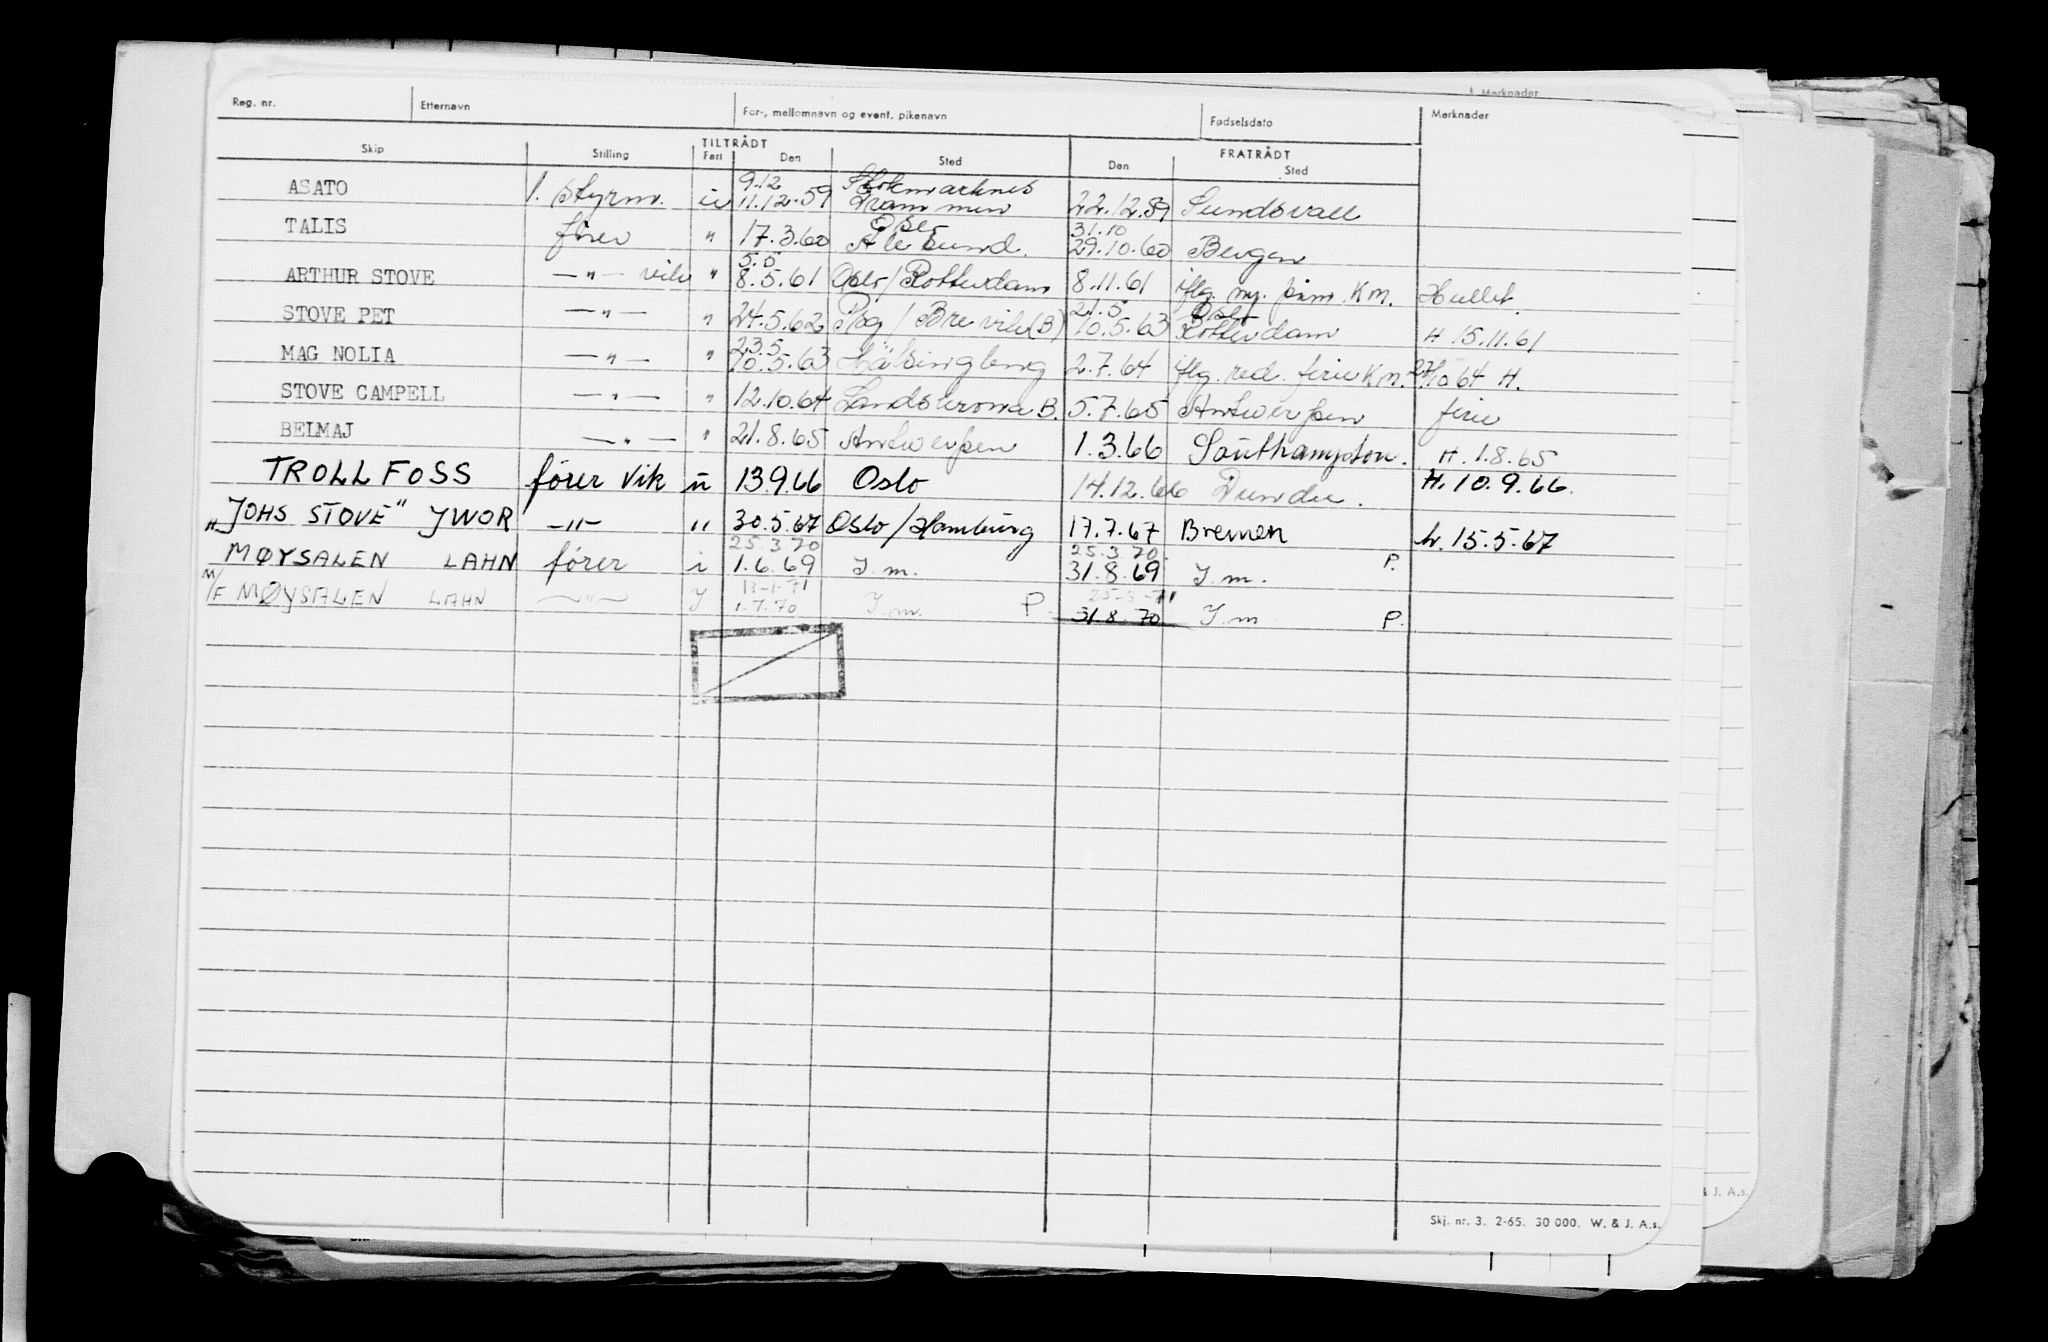 Merknader
Reg. nr. Etternavn For-, mellomnavn og event. pikenavn Fødselsdato Merknader
TILTRÅDT FRATRÅDT
Skip Stilling Fart Den Sted Den Sted
9.12 Stokmarknes
ASATO 1. styrm. u 11.12.59 Drammen 22.12.59 Sundsvall
Oslo 31.10
TALIS fører " 17.3.60 Ålesund. 29.10.60 Bergen
5.5
ARTHUR STOVE —"— vik " 8.5.61 Oslo/Rotterdam 8.11.61 iflg. my. KM. Hullet.
21.5 Oslo
STOVE PET —"— " 24.5.62 Pbg/Brevik(B) 10.5.63 Rotterdam H 15.11.61
23.5
MAG NOLIA —"— " 10.5.63 Hälsingborg 2.7.64 iflg. red. ferie KM. 27/10 64 H.
STOVE CAMPELL —"— " 12.10.64 Landskrona B. 5.7.65 Antwerpen ferie
BELMAJ —"— " 21.8.65 Antwerpen 1.3.66 Southampton. H. 1.8.65
TROLL FOSS fører Vik u 13.9.66 Oslo 14.12.66 Dundee. H. 10.9.66.
"JOHS STOVE" JWOR —"— " 30.5.67 Oslo/Hamburg 17.7.67 Bremen h. 15.5.67
25.3.70 25.3.70.
MØYSALEN LAHN fører i 1.6.69 J.m. 31.8.69 J.m. P.
13-1-71 25-3-71
M/F MØYSALEN LAHN —"— J 1.7.70 J.m. P. 31.8.70 J.m P.
Skj. nr. 3. 2-65. 30 000. W. & J. A.s.
& J. A.s.